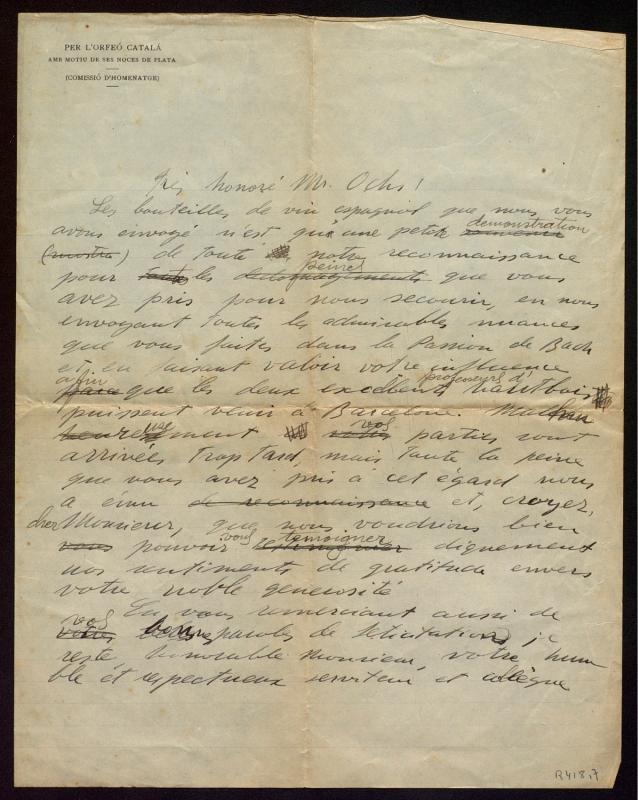 PER L'ORFEÓ CATALÁ
AMB MOTIU DE SES NOCES DE PLATA
(COMISSIÓ D'HOMENATGE)
Très honoré Mr. Ochs!
Les bouteilles de vin espagnol que nous vous
avons envoyé n'est qu'une petite demonstration
(mostra) de toute notre reconnaissance
pour toutes les peines que vous
avez pris pour nous secourir, en nous
envoyant toutes les admirables nuances
que vous faites dans la Passion de Bach
et en faisant valoir votre influence
afin que les deux excellents professeurs d'hautbois
puissent venir à Barcelone. Malheu
heureusement vos parties sont
arrivées trop tard, mais toute la peine
que vous avez pris à cet égard nous
a ému de reconnaissance et, croyez,
cher Monsieur, que nous voudrions bien
vous pouvoir vous temoigner dignement
nos sentiments de gratitude envers
votre noble generosité
En vous remerciant aussi de
vos bonnes paroles de felicitation, je
reste, honorable Monsieur, votre hum
ble et respectueux serviteur et collègue
R418,7